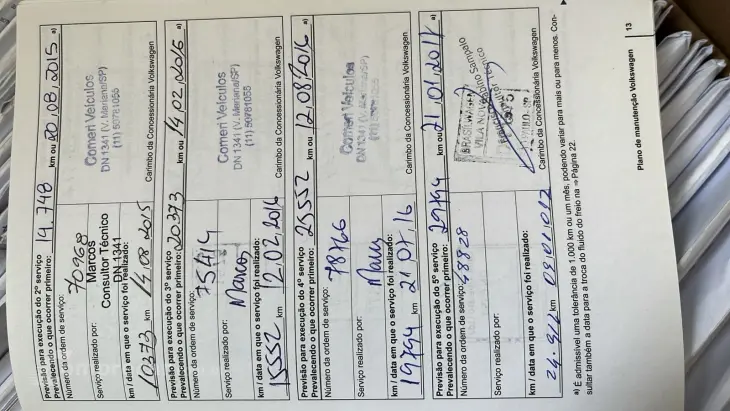 Previsão para execução do 2º serviço
Prevalecendo o que ocorrer primeiro: 14.748 km ou 20,08,2015 a)
Número da ordem de serviço: 70968
Serviço realizado por: Marcos
Consultor Técnico
DN 1341
Comeri Veículos
DN 1341 (V. Mariana/SP)
(11) 50781055
km / data em que o serviço foi realizado:
10373 km 14,08,2015
Carimbo da Concessionária Volkswagen
Previsão para execução do 3º serviço
Prevalecendo o que ocorrer primeiro: 20373 km ou 14,02,2016 a)
Número da ordem de serviço: 75414
Serviço realizado por: Marcos
Comeri Veículos
DN 1341 (V. Mariana/SP)
(11) 50781055
km / data em que o serviço foi realizado:
15552 km 12.02,2016
Carimbo da Concessionária Volkswagen
Previsão para execução do 4º serviço
Prevalecendo o que ocorrer primeiro: 25552 km ou 12,08,2016 a)
Número da ordem de serviço: 78766
Serviço realizado por:
Comeri Veículos
DN 1341 (V. Mariana/SP)
km / data em que o serviço foi realizado:
19794 km 21,07,16
Carimbo da Concessionária Volkswagen
Previsão para execução do 5º serviço
Prevalecendo o que ocorrer primeiro: 29794 km ou 21,01,2017 a)
Número da ordem de serviço: 48828
Serviço realizado por:
BRASILWAGEN
Sampaio
km / data em que o serviço foi realizado:
km
Carimbo da Concessionária Volkswagen
a) É admissível uma tolerância de 1.000 km ou um mês, podendo variar para mais ou para menos. Con-
sultar também a data para a troca do fluido do freio na ⇒ Página 22.
Plano de manutenção Volkswagen | 13